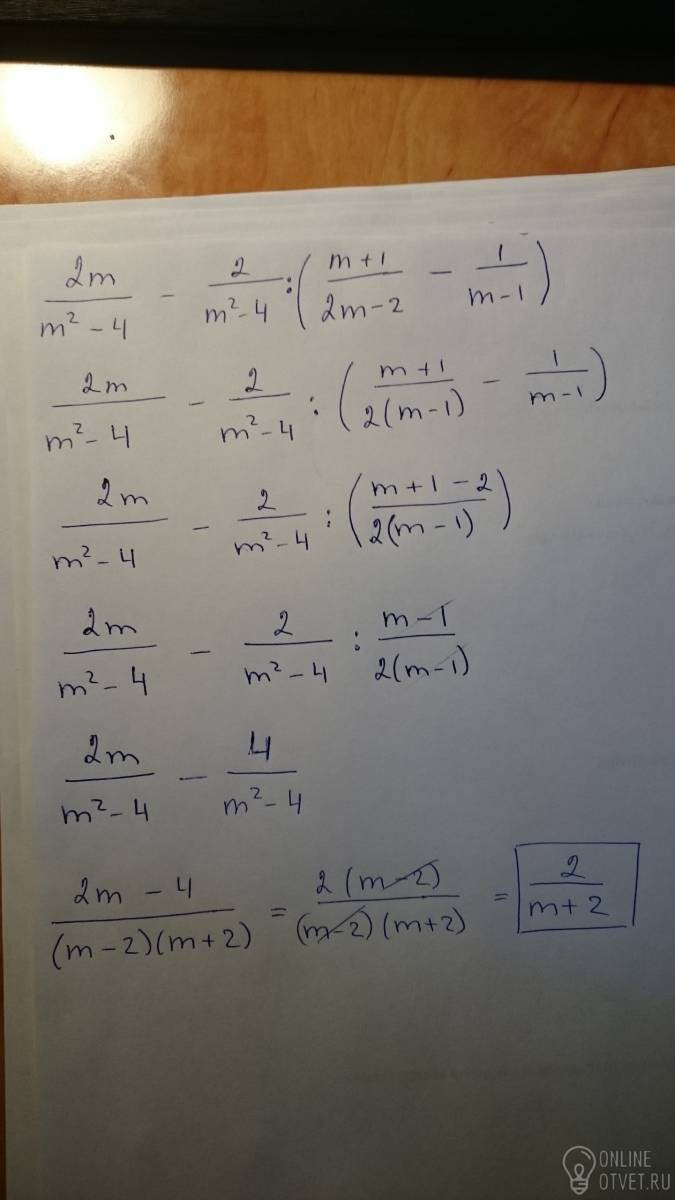 2m/(m² - 4) - 2/(m² - 4) : ((m+1)/(2m-2) - 1/(m-1))
2m/(m² - 4) - 2/(m² - 4) : ((m+1)/(2(m-1)) - 1/(m-1))
2m/(m² - 4) - 2/(m² - 4) : ((m+1-2)/(2(m-1)))
2m/(m² - 4) - 2/(m² - 4) : (m-1)/(2(m-1))
2m/(m² - 4) - 4/(m² - 4)
(2m - 4)/((m-2)(m+2)) = 2(m-2)/((m-2)(m+2)) = 2/(m+2)
ONLINE
OTVET.RU